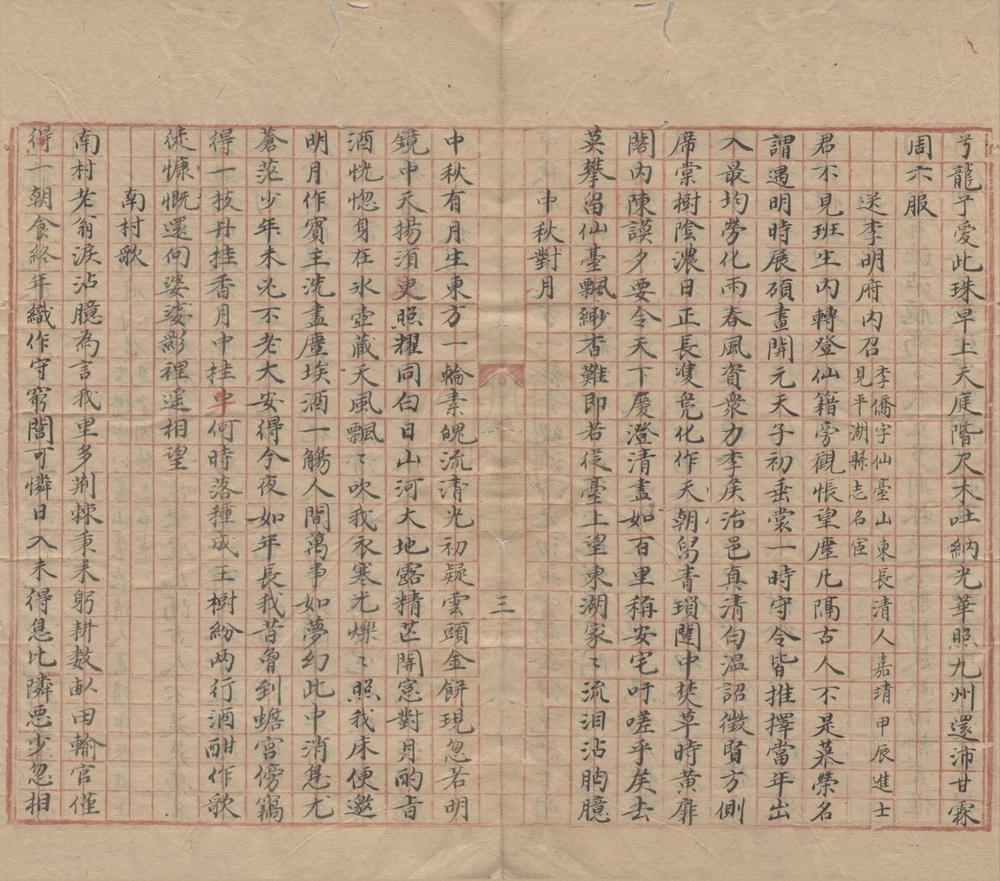 兮龍乎愛此珠早上天庭階尺木吐納光華照九州還沛甘霖
周六服
送李明府內召李僑字仙臺山東長清人嘉靖甲辰進士
見平湖縣志名宦
君不見班生內轉登仙籍旁觀悵望塵凡隔古人不是慕榮名
謂遇明時展碩畫開元天子初垂裳一時守令皆推擇當年出
入最均勞化雨春風資衆力李侯治邑真清白溫詔徵賢方側
席棠樹陰濃日正長雙鳧化作天朝舄青瑣闥中焚草時黄扉
閣內陳謨夕要令天下慶澄清盡如百里稱安宅吁嗟乎侯去
莫攀留仙臺飄緲杳難即若從臺上望東湖家〻流泪沾胸臆
中秋對月
中秋有月生東方一輪素魄流清光初疑雲頭金餅現忽若明
鏡中天揚湏臾照耀同白日山河大地露精芒開窓對月酌旨
酒恍惚身在氷壺藏天風飄〻吹我衣寒光爍〻照我床便邀
明月作賓主洗盡塵埃酒一觴人間萬事如夢幻此中消息尤
蒼茫少年未見不老大安得今夜如年長我昔曾到蟾宮傍竊
得一枝丹桂香月中桂子何時落種成玉樹紛两行酒酣作歌
徒慷慨還向婆娑影裡遥相望
南村歌
南村老翁淚沾臆為言我里多荆棘秉耒躬耕数畝田輸官僅
得一朝食終年織作守窮閭可憐日入未得息比隣惡少忽相
三